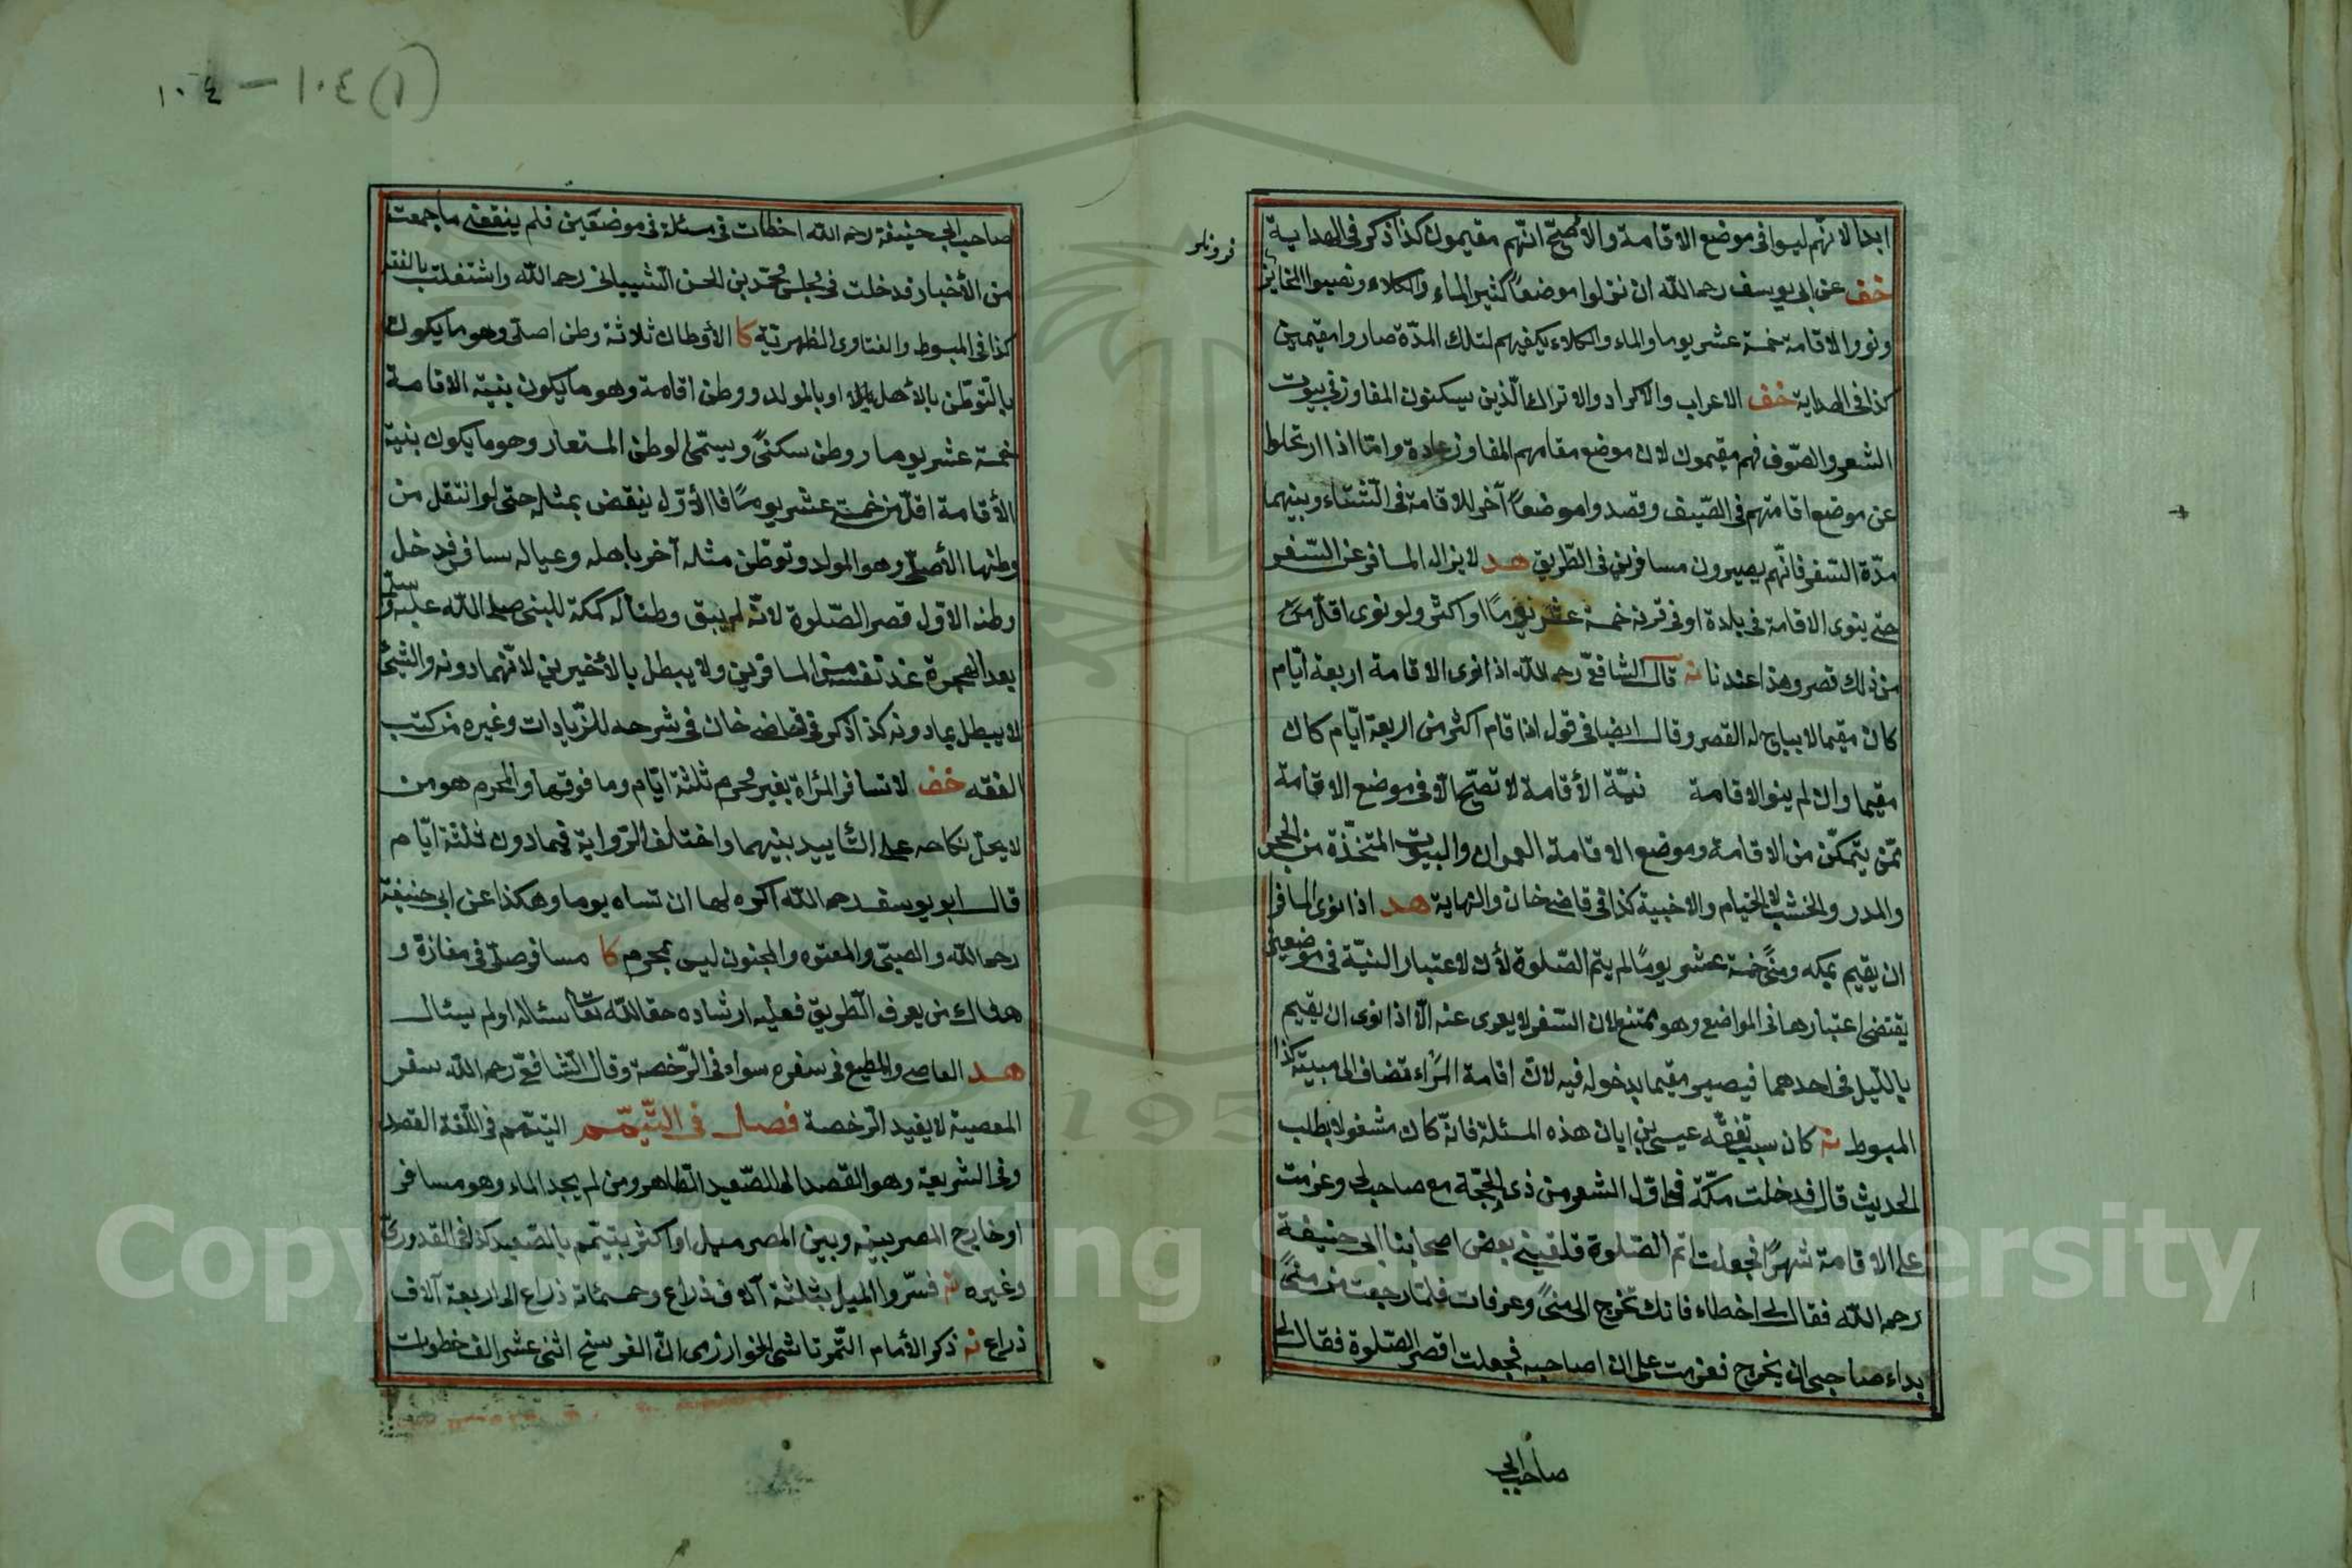 ابدا لانهم ليوا فى موضع الاقامة والاصح انهم مقيمون كذا ذكر فى الهداية
خف عن ابى يوسف رحمه الله ان نزلوا موضعًا كثير الماء والكلاء ونصبوا
ونووا الاقامة خمسة عشر يوما والماء والكلاء يكفيهم لتلك المدّة صاروا مقيمين
كذا فى الهداية خف الاعراب والاكراد والاتراك الّذين يسكنون المفاوز فى بيوت
الشعر والصّوف فهم مقيمون لان موضع مقامهم المفاوز عادة وامّا اذا ارتحلوا
عن موضع اقامتهم فى الصّيف وقصدوا موضعًا آخر للاقامة فى الشّتاء وبينهما
مدّة السّفر فانّهم يصيرون مسافرين فى الطّريق هد لا يزال المسافر عن السّفر
حتى ينوى الاقامة فى بلدة او فى قرية خمسة عشر يومًا او اكثر ولو نوى اقلّ من
من ذلك قصر وهذا عندنا نه قال الشافعىّ رحمه الله اذا نوى الاقامة اربعة ايّام
كان مقيما لا يباح له القصر وقال ايضا فى قول اذا قام اكثر من اربعة ايّام كان
مقيما وان لم ينو الاقامة نيّة الأقامة لا تصحّ الّا فى موضع الاقامة
ممّن يتمكّن من الاقامة وموضع الاقامة العمران والبيوت المتخذّة من الحجر
والمدر والخشب لا الخيام والاخبية كذا فى قاضى خان والنهاية هد اذا نوى المسافر
ان يقيم بمكه ومنًى خمسة عشر يومًا لم يتمّ الصّلوة لأن لاعتبار النيّة فى موضعين
يقتضى اعتبارها فى المواضع وهو ممتنع لان السّفر لا يعرى عنه الّا اذا نوى ان يقيم
باللّيل فى احدهما فيصير مقيما بدخوله فيه لانّ اقامة المرء تضاف الى مبيته كذا
المبسوط نه كان سبب تفقّه عيسى بن ابان هذه المسئلة فانّه كان مشغولا بطلب
الحديث قال فدخلت مكّة فى اوّل الشهر من ذى الحجّة مع صاحب لى وعزمت
على الاقامة شهرًا فجعلت اتم الصّلوة فلقينى بعض اصحابنا ابى حنيفة
رحمه الله فقال لى اخطاء فانك تخرج الى منىً وعرفات فلمّا رجعت من منىً
بداء صاحبى ان يخرج فعزمت على ان اصاحبه فجعلت اقصر الصّلوة فقال لى
صاحب ابى
(١) ١٠٤ – ١٠٤
صاحب ابى حنيفة رحمه الله اخطات فى مسئلة فى موضعين فلم ينفعنى ما جمعت
من الأخبار فدخلت فى مجلس محمّد بن الحسن الشيبانى رحمه الله واشتغلت بالفقه
كذا فى المبسوط والفتاوى الظهيريّة كا الأوطان ثلاثة وطن اصلىّ وهو ما يكون
بالتّوطّن بالأهل او بالمولد ووطن اقامة وهو ما يكون بنيّة الاقامة
خمسة عشر يوما ووطن سكنىً ويسمّى الوطن المستعار وهو ما يكون بنيّة
الأقامة اقلّ من خمسة عشر يومًا فالأوّل ينقض بمثله حتى لو انتقل من
وطنها الأصلىّ وهو المولد وتوطّن مثله آخر باهله وعياله سافر فدخل
وطنه الاول قصر الصّلوة لانّه لم يبق وطنًا له كمكّة للنبى صلى الله عليه وسلم
بعد الهجرة عدّ نفسه من المسافرين ولا يبطل بالأخيرين لانّهما دونه والشئ
لا يبطل بما دونه كذا ذكر فى قاضى خان فى شرحه للزّيادات وغيره من كتب
الفقه خف لا تسافر المرأة بغير محرم ثلثة ايّام وما فوقها والمحرم هو من
لا يحلّ نكاحه على التّأبيد بينهما واختلف الرّواية فيما دون ثلثة ايّام
قال ابو يوسف رحمه الله اكره لها ان تسافر يوما وهكذا عن ابى حنيفة
رحمه الله والصبىّ والمعتوه والمجنون ليس بمحرم كا مسافر صلّى فى مفازة و
هناك من يعرف الطّريق فعليه ارشاده حقا لله تعا سئاله او لم يسئال
هد العاصى والمطيع فى سفره سواء فى الرّخصة وقال الشّافعىّ رحمه الله سفر
المعصية لا يفيد الرّخصة فصل فى التّيمّم التيمّم فى اللّغة القصد
وفى الشريعة وهو القصد الى الصّعيد الطّاهر ومن لم يجد الماء وهو مسافر
او خارج المصر بينه وبين المصر ميل او اكثر يتيمّم بالصّعيد كذا فى القدورىّ
وغيره نه فسّروا الميل بثلثة آلاف ذراع وخمسمائة ذراع الى اربعة آلاف
ذراع نه ذكر الأمام التّمرتاشى الخوارزمى انّ الفرسخ اثنى عشر الف خطوات
Copyright © King Saud University
1957